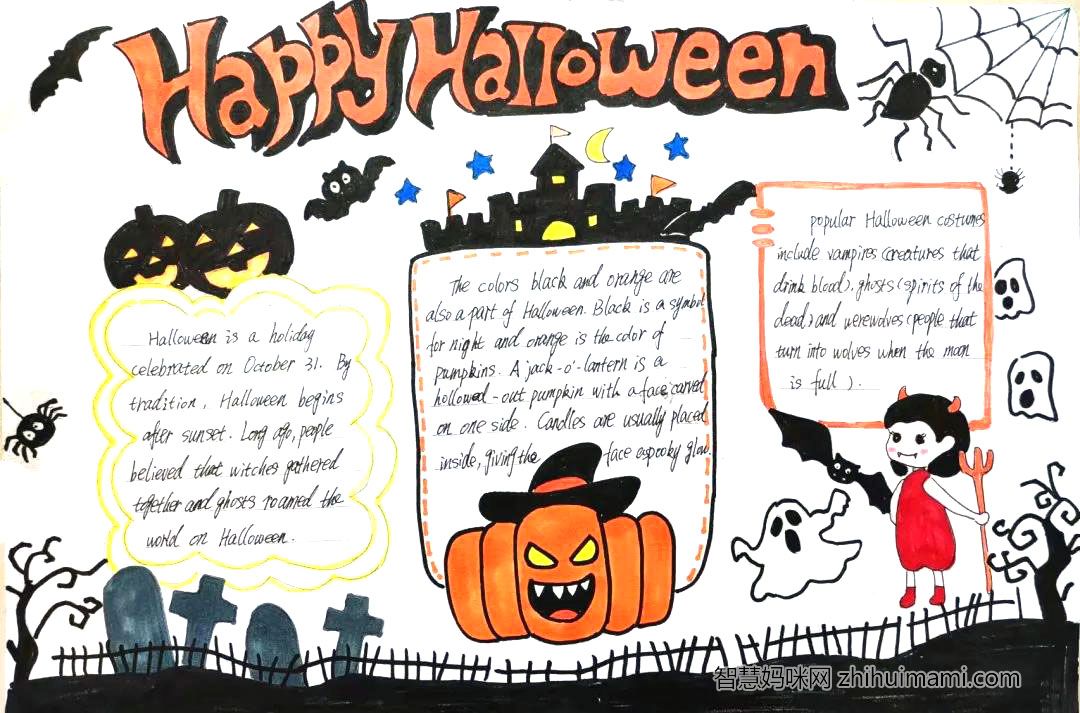 Happy Halloween
Halloween is a holiday
celebrated on October 31. By
tradition, Halloween begins
after sunset. Long ago, people
believed that witches gathered
together and ghosts roamed the
world on Halloween.
The colors black and orange are
also a part of Halloween. Black is a symbol
for night and orange is the color of
pumpkins. A jack-o'-lantern is a
hollowed-out pumpkin with a face carved
on one side. Candles are usually placed
inside, giving the face a spooky glow.
popular Halloween costumes
include vampires (creatures that
drink blood), ghosts (spirits of the
dead) and werewolves (people that
turn into wolves when the moon
is full).
智慧妈咪网 zhihuimami.com